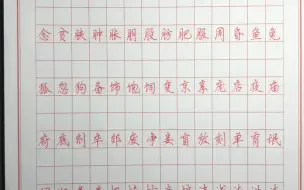 念贫肤肿胀朋股肪肥服周昏鱼兔
狐忽狗备饰饱饲变京享庞店夜庙
府底剂卒郊废净妾盲放刻单育氓